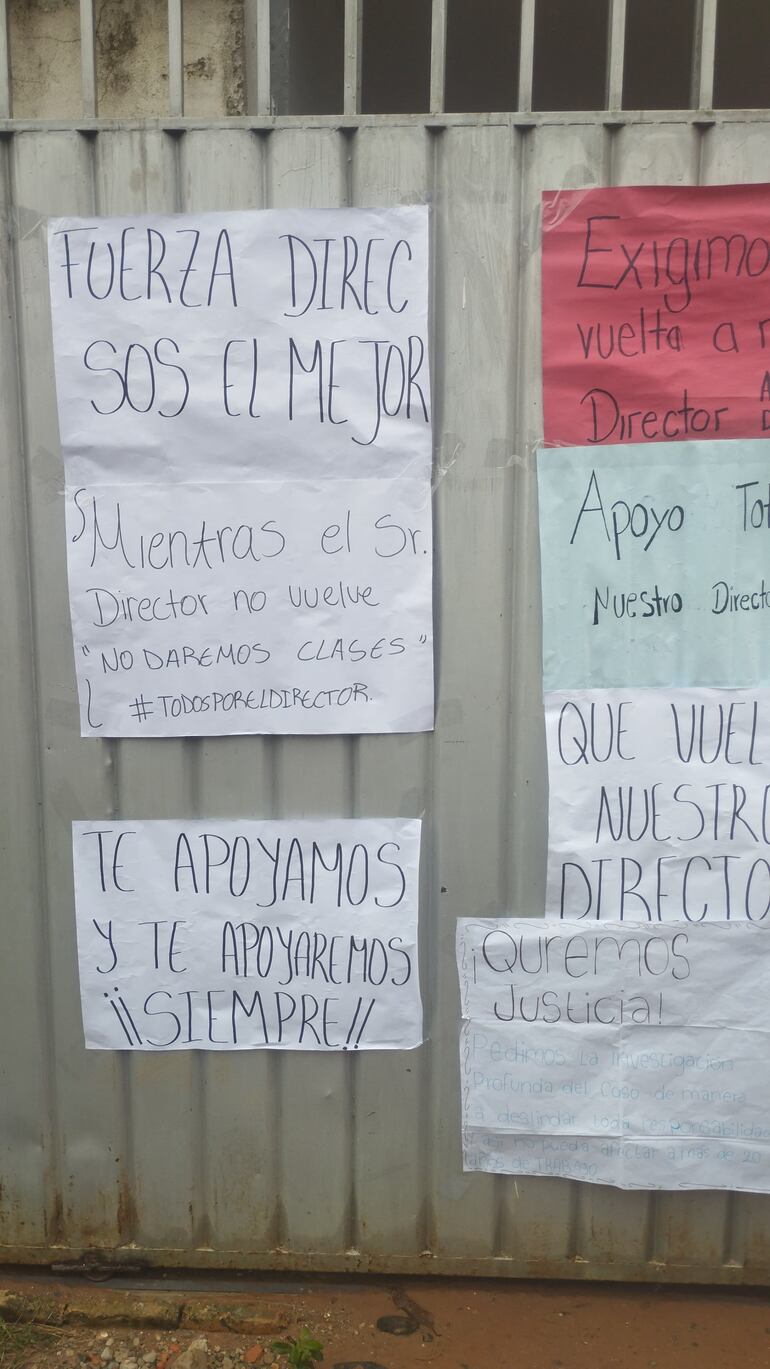 FUERZA DIREC
SOS EL MEJOR
Mientras el Sr.
Director no vuelve
"NO DAREMOS CLASES"
#TODOSPORELDIRECTOR.
TE APOYAMOS
Y TE APOYAREMOS
¡¡SIEMPRE!!
Exigimo
vuelta a
Director
Apoyo Tot
Nuestro Directo
QUE VUEL
NUESTRO
DIRECTO
¡Quremos
Justicia!
Pedimos La Investigación
Profunda del Caso de manera
a deslindar toda responsabilidad
no pueda afectar a mas de 20
años de TRABAJO